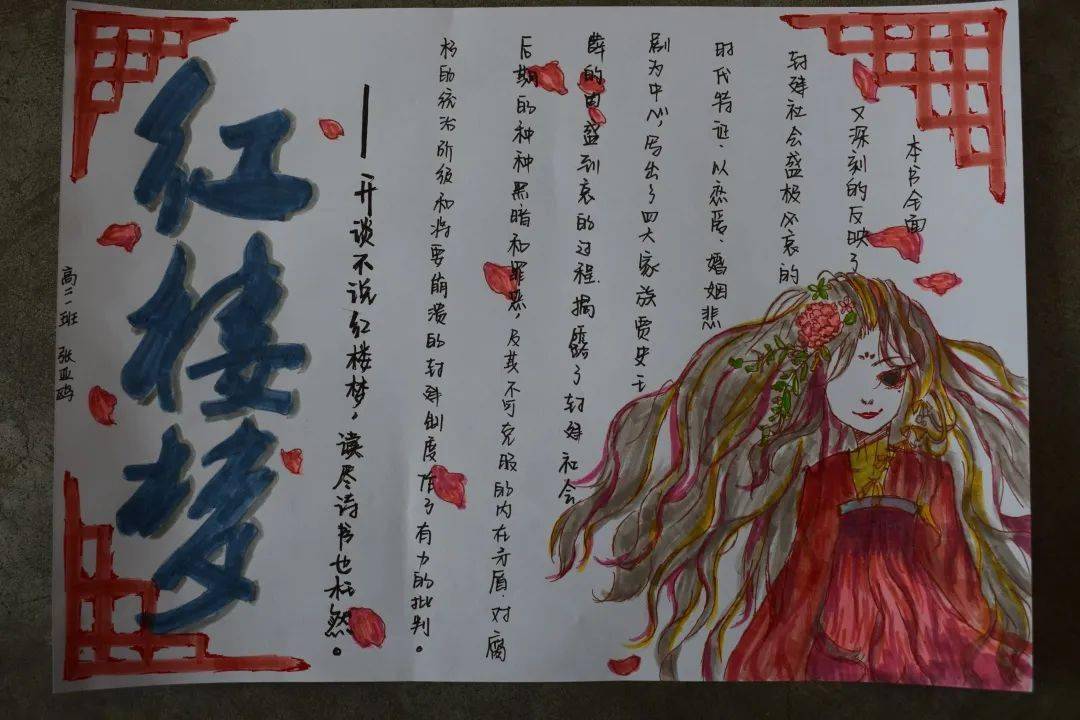 本书全面
又深刻的反映了
封建社会盛极风衰的
时代特证、以恋爱、婚姻悲
剧为中心，写出了四大家族贾史王
薛的由盛到衰的过程.揭露了封建社会
后期的种种黑暗和罪恶，及其不可克服的内在矛盾.对腐
朽的统治阶级和将要崩溃的封建制度作了有力的批判。
——开谈不说红楼梦，读尽诗书也枉然。
红楼梦
高二一班 张亚鸥